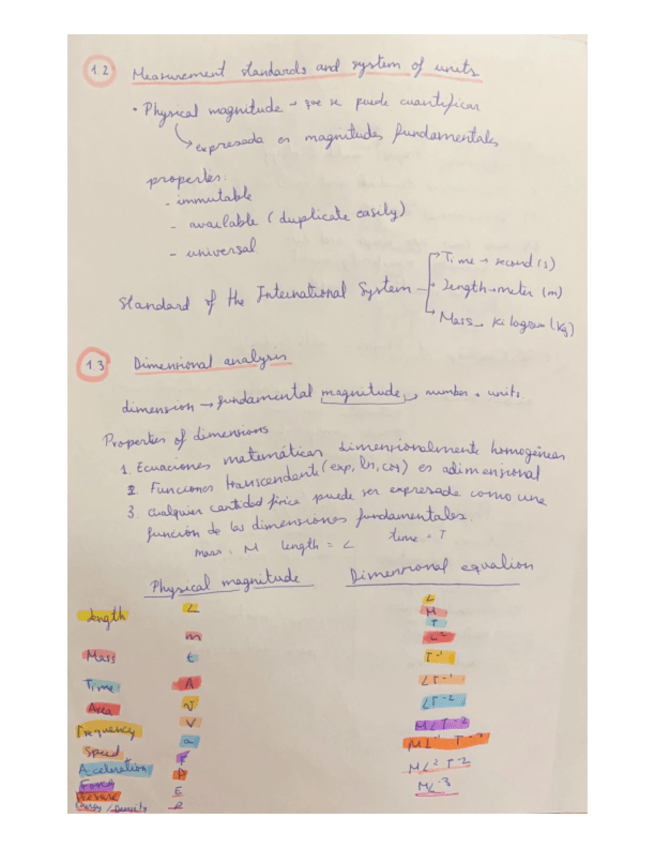 1.2 Measurement standards and system of units
• Physical magnitude → que se puede cuantificar
↳ expresada en magnitudes fundamentales
propertes:
- immutable
- available (duplicate easily)
- universal
Standard of the International System
Time → second (s)
Length → meter (m)
Mass → kilogram (kg)
1.3 Dimensional analysis
dimension → fundamental magnitude → number + units.
Properties of dimensions
1. Ecuaciones matemáticas dimensionalmente homogéneas
2. Funciones transcendente (exp, ln, cos) es adimensional
3. cualquier cantidad física puede ser expresada como una
función de las dimensiones fundamentales.
mass: M length = L time = T
Physical magnitude Dimensional equation
Length L L
Mass m M
Time t T
Area A L²
Frequency ν T⁻¹
Speed v LT⁻¹
Aceleration a LT⁻²
Force F MLT⁻²
Pressure P ML⁻¹T⁻²
Energy / Density E ML²T⁻²
ML⁻³